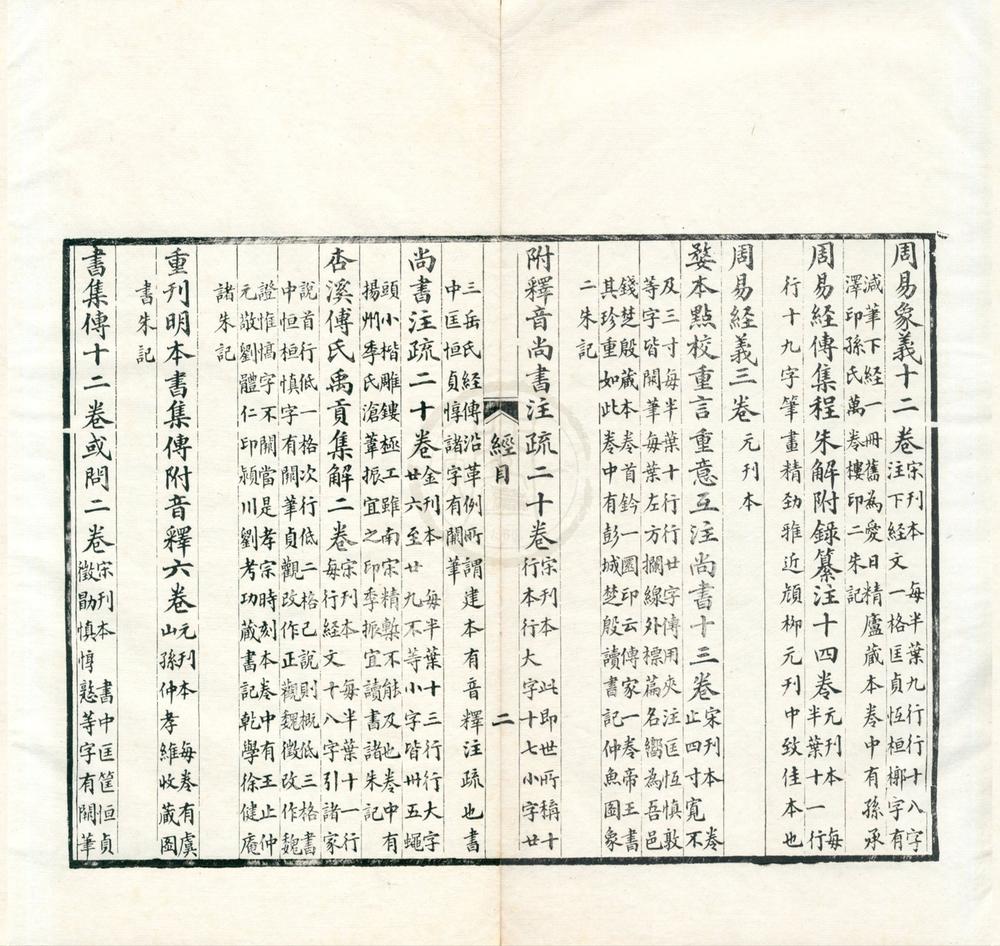 周易象義十二卷
宋刊本 每半葉九行行十八字
注下經文一格匡貞恆桓槨字有
減筆下經一冊舊為愛日精廬藏本卷中有孫承
澤印孫氏萬卷樓印二朱記
周易經傳集程朱解附錄纂注十四卷
元刊本 每
半葉十一行
行十九字筆畫精勁雅近顏柳元刊中致佳本也
周易經義三卷 元刊本
婺本點校重言重意互注尚書十三卷
宋刊本 卷
止四寸寬不
及三寸每半葉十行行廿字傳用夾注匡恆慎敦
等字皆闕筆每葉左方攔線外標篇名嚮為吾邑
錢楚殷藏本卷首鈐一圜印云傳家一卷帝王書
其珍重如此卷中有彭城楚殷讀書記仲魚圖象
二朱記
附釋音尚書注疏二十卷
宋刊本 此即世所稱十
行本行大字十七小字廿
經目 二
三岳氏經傳沿革例所謂建本有音釋注疏也書
中匡恒貞惇諸字有闕筆
尚書注疏二十卷
金刊本 每半葉十三行行大字
廿六至廿九不等小字皆卅五蠅
頭小楷雕鏤極工雖南宋精槧不能及也卷中有
揚州季氏滄葦振宜之印季振宜讀書諸朱記
杏溪傅氏禹貢集解二卷
宋刊本 每半葉十一行
每行經文十八字引諸家
說首行低一格次行低二格己說則概低三格書
中恒桓慎字有闕筆貞觀改作正觀魏徵改作魏
證惟惇字不闕當是孝宗時刻本卷中有王止仲
元敬劉體仁印潁川劉考功藏書記乾學徐健庵
諸朱記
重刊明本書集傳附音釋六卷
元刊本 每卷有虞
山孫仲孝維收藏圖
書朱記
書集傳十二卷或問二卷
宋刊本 書中匡筐恒貞
徵勗慎惇慤等字有闕筆